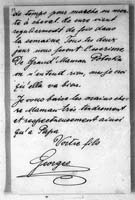 de temps pour marcher ou mon
te à cheval de
régulièrement de fois dans
la semaine Tous les deux
jours nous avons l'escrime
De Grand Maman Potocka
on n'entend rien, mais je crois
qu'elle va bien.
Je vous baise les mains chè
re Maman très tendrement
et respectueusement ainsi
qu'à Papa
Votre fils
Georges